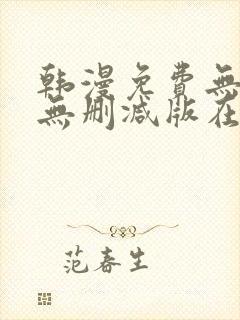 韩漫免費無
無删减版在
范春生